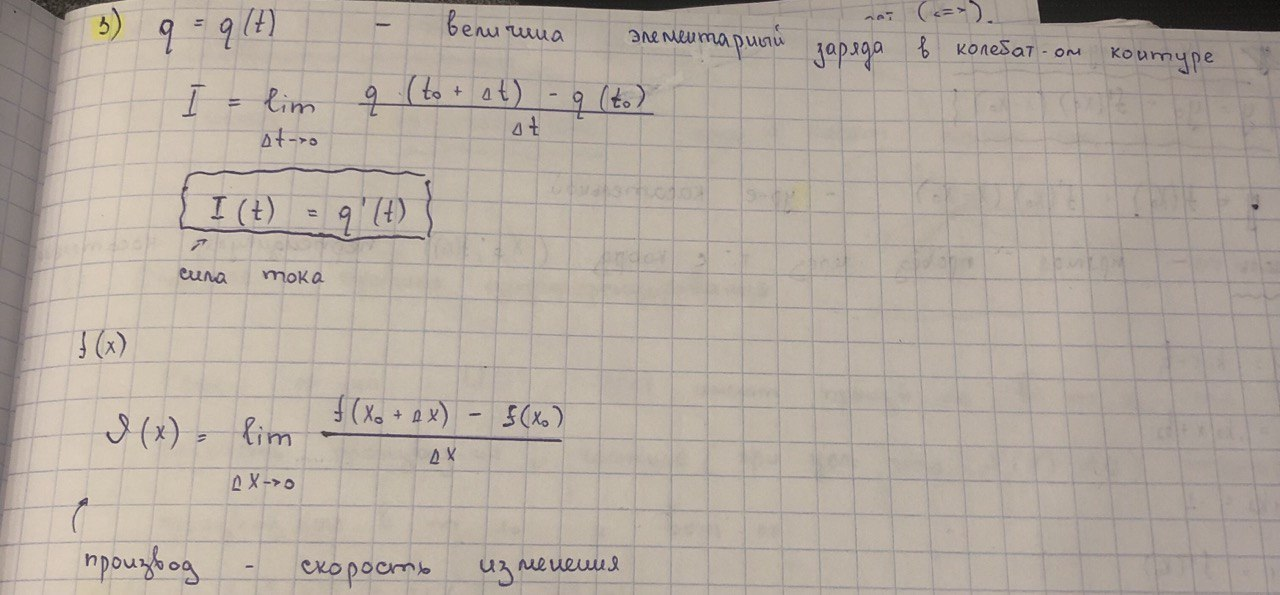 (<=>).
3) q = q(t) - величина элементарный заряда в колебат-ом контуре
I = lim q (t₀ + Δt) - q(t₀)
Δt
Δt->0
I(t) = q'(t)
сила тока
f(x)
f(x₀ + Δx) - f(x₀)
ϑ(x) = lim
Δx
Δx->0
производ - скорость изменения